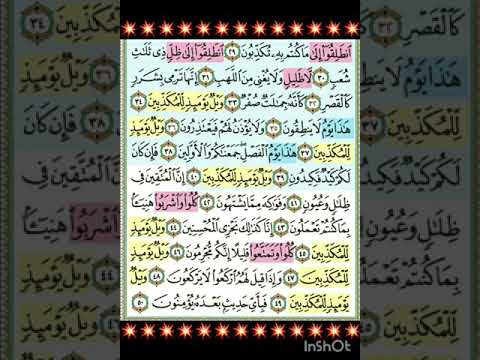 ٱنطَلِقُوٓا۟ إِلَىٰ مَا كُنتُم بِهِۦ تُكَذِّبُونَ ٢٩ ٱنطَلِقُوٓا۟ إِلَىٰ ظِلٍّ ذِى ثَلَٰثِ
شُعَبٍ ٣٠ لَّا ظَلِيلٍ وَلَا يُغْنِى مِنَ ٱللَّهَبِ ٣١ إِنَّهَا تَرْمِى بِشَرَرٍ
كَٱلْقَصْرِ ٣٢ كَأَنَّهُۥ جِمَٰلَتٌ صُفْرٌ ٣٣ وَيْلٌ يَوْمَئِذٍ لِّلْمُكَذِّبِينَ ٣٤
هَٰذَا يَوْمُ لَا يَنطِقُونَ ٣٥ وَلَا يُؤْذَنُ لَهُمْ فَيَعْتَذِرُونَ ٣٦ وَيْلٌ يَوْمَئِذٍ
لِّلْمُكَذِّبِينَ ٣٧ هَٰذَا يَوْمُ ٱلْفَصْلِ جَمَعْنَٰكُمْ وَٱلْأَوَّلِينَ ٣٨ فَإِن كَانَ
لَكُمْ كَيْدٌ فَكِيدُونِ ٣٩ وَيْلٌ يَوْمَئِذٍ لِّلْمُكَذِّبِينَ ٤٠ إِنَّ ٱلْمُتَّقِينَ فِى
ظِلَٰلٍ وَعُيُونٍ ٤١ وَفَوَٰكِهَ مِمَّا يَشْتَهُونَ ٤٢ كُلُوا۟ وَٱشْرَبُوا۟ هَنِيٓـًٔۢا
بِمَا كُنتُمْ تَعْمَلُونَ ٤٣ إِنَّا كَذَٰلِكَ نَجْزِى ٱلْمُحْسِنِينَ ٤٤ وَيْلٌ يَوْمَئِذٍ
لِّلْمُكَذِّبِينَ ٤٥ كُلُوا۟ وَتَمَتَّعُوا۟ قَلِيلًا إِنَّكُم مُّجْرِمُونَ ٤٦ وَيْلٌ يَوْمَئِذٍ
لِّلْمُكَذِّبِينَ ٤٧ وَإِذَا قِيلَ لَهُمُ ٱرْكَعُوا۟ لَا يَرْكَعُونَ ٤٨ وَيْلٌ
يَوْمَئِذٍ لِّلْمُكَذِّبِينَ ٤٩ فَبِأَىِّ حَدِيثٍۭ بَعْدَهُۥ يُؤْمِنُونَ ٥٠
InShOt